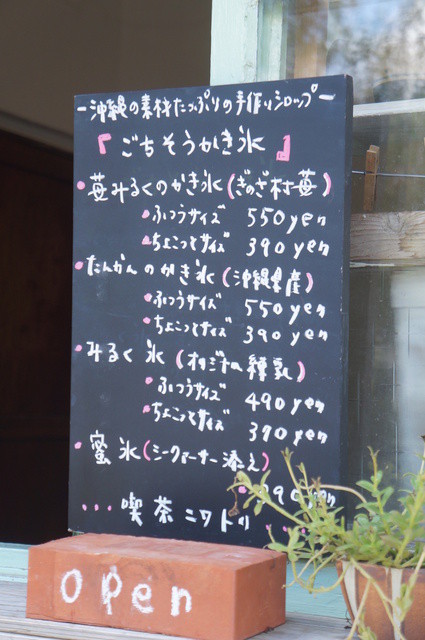 －沖縄の素材たっぷりの手作りシロップ－
『ごちそうかき氷』
・苺みるくのかき氷(ぎのざ村苺)
・ふつうサイズ 550yen
・ちょこっとサイズ 390yen
・たんかんのかき氷(沖縄県産)
・ふつうサイズ 550yen
・ちょこっとサイズ 390yen
・みるく氷(オリジナル練乳)
・ふつうサイズ 490yen
・ちょこっとサイズ 390yen
・蜜氷(シークァーサー添え)
90yen
・・・喫茶ニワトリ
open